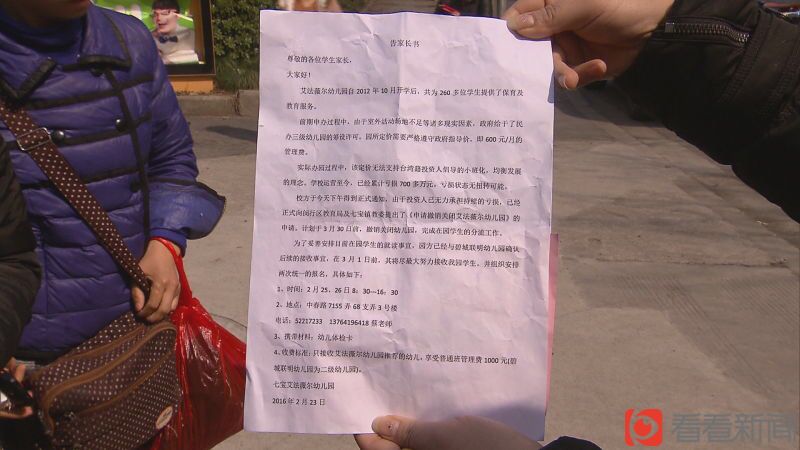 告家长书
尊敬的各位学生家长，
大家好！
艾法薇尔幼儿园自 2012 年 10 月开学后，共为 260 多位学生提供了保育及
教育服务。
前期申办过程中，由于室外活动场地不足等诸多现实因素，政府给于了民
办三级幼儿园的筹设许可。园所定价需要严格遵守政府指导价，即 600 元/月的
管理费。
实际办园过程中，该定价无法支持台湾籍投资人倡导的小班化，均衡发展
的理念。学校运营至今，已经累计亏损 700 多万元，亏损状态无扭转可能。
校方于今天下午得到正式通知，由于投资人已无力承担持续的亏损，已经
正式向闵行区教育局及七宝镇教委提出了《申请撤销关闭艾法薇尔幼儿园》的
申请，计划于 3 月 30 日前，撤销关闭幼儿园，完成在园学生的分流工作。
为了妥善安排目前在园学生的就读事宜，园方已经与碧城联明幼儿园确认
后续的接收事宜，在 3 月 1 日前，其将尽最大努力接收我园学生，并组织安排
两次统一的报名，具体如下：
1、时间：2 月 25、26 日 8：30---16：30
2、地点：中春路 7155 弄 68 支弄 3 号楼
电话：52217233 13764196418 蔡老师
3、携带材料：幼儿体检卡
4、收费标准：只接收艾法薇尔幼儿园推荐的幼儿，享受普通班管理费 1000 元(碧
城联明幼儿园为二级幼儿园)。
七宝艾法薇尔幼儿园
2016 年 2 月 23 日
看看新闻